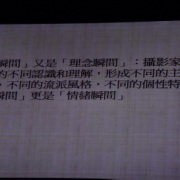 瞬間」又是「理念瞬間」：攝影家
的不同認識和理解，形成不同的主
，不同的流派風格，不同的個性特
瞬間」更是「情緒瞬間」